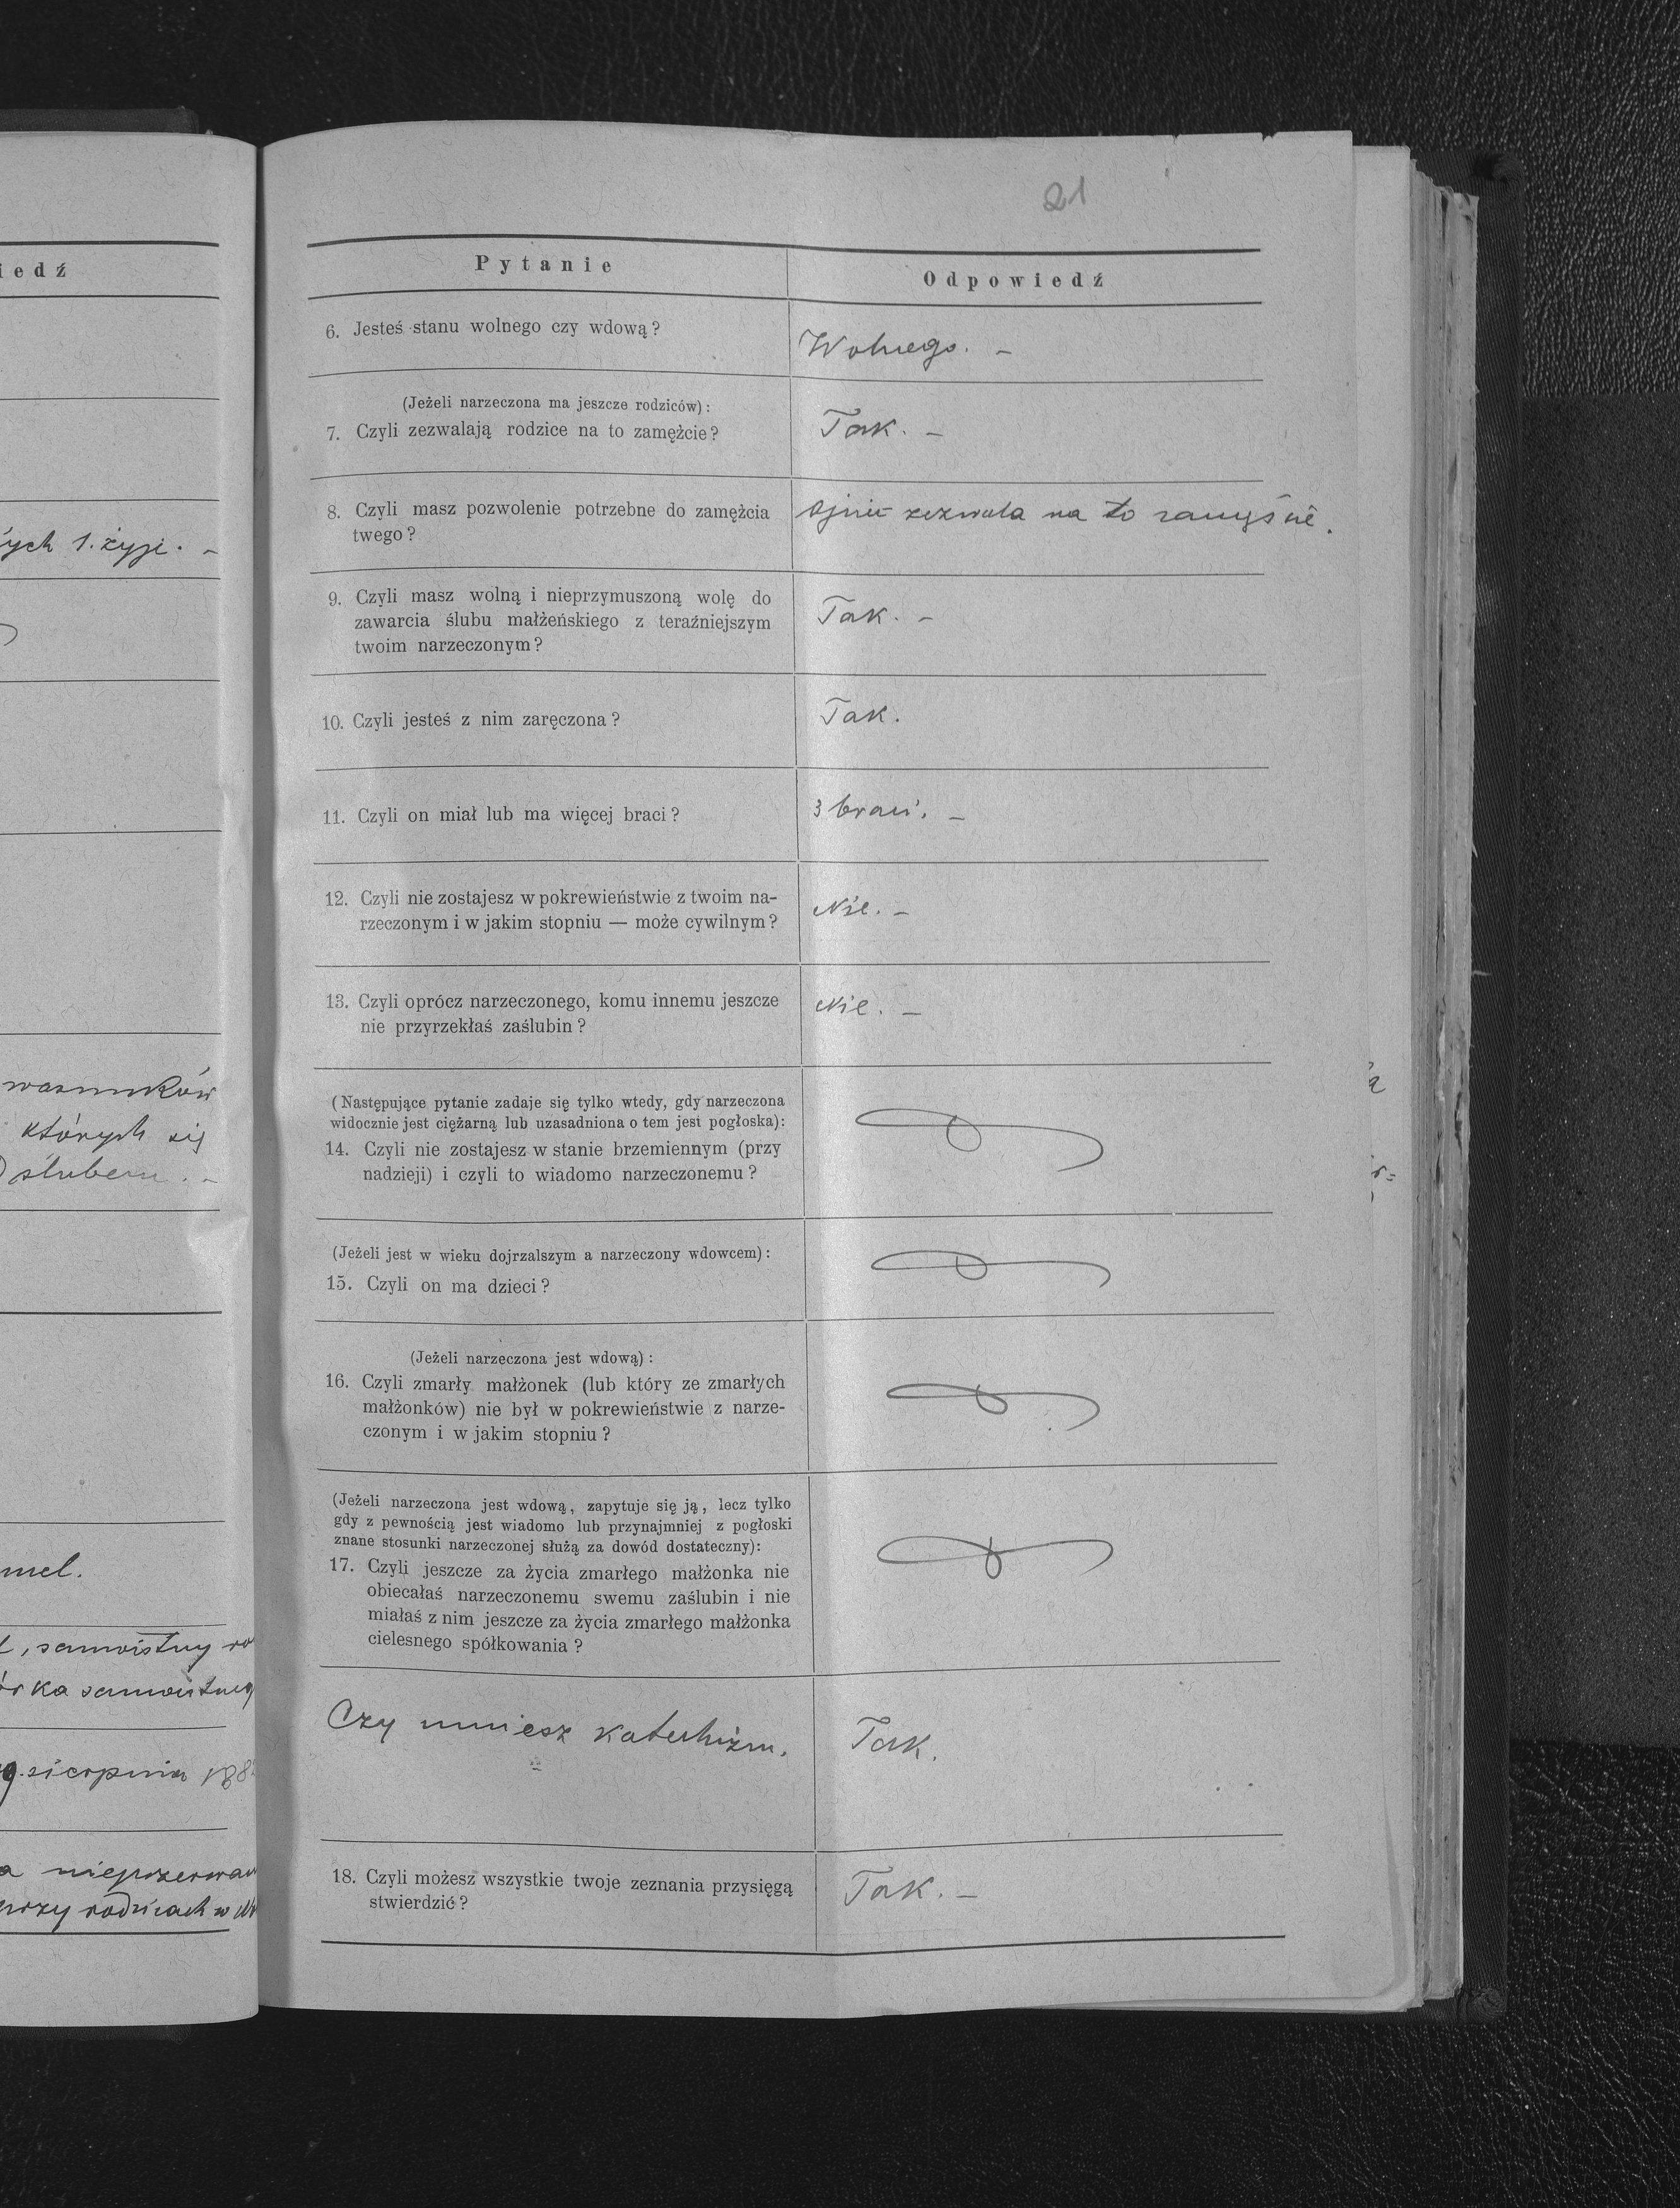 iedź
ych 1. żyje. -
warunków
których się
ślubem. -
mel.
, samoistny
ka samoistneg
sierpnia 188
a nieprzerwan
przy rodzicach w
21
Pytanie
Odpowiedź
6. Jesteś stanu wolnego czy wdową?
Wolnego. -
(Jeżeli narzeczona ma jeszcze rodziców):
7. Czyli zezwalają rodzice na to zamężcie?
Tak. -
8. Czyli masz pozwolenie potrzebne do zamężcia
twego?
zezwala na to
9. Czyli masz wolną i nieprzymuszoną wolę do
zawarcia ślubu małżeńskiego z teraźniejszym
twoim narzeczonym?
Tak. -
10. Czyli jesteś z nim zaręczona?
Tak.
11. Czyli on miał lub ma więcej braci?
3 braci. -
12. Czyli nie zostajesz w pokrewieństwie z twoim na-
rzeczonym i w jakim stopniu — może cywilnym?
Nie. -
13. Czyli oprócz narzeczonego, komu innemu jeszcze
nie przyrzekłaś zaślubin?
Nie. -
(Następujące pytanie zadaje się tylko wtedy, gdy narzeczona
widocznie jest ciężarną lub uzasadniona o tem jest pogłoska):
14. Czyli nie zostajesz w stanie brzemiennym (przy
nadzieji) i czyli to wiadomo narzeczonemu?
(Jeżeli jest w wieku dojrzalszym a narzeczony wdowcem):
15. Czyli on ma dzieci?
(Jeżeli narzeczona jest wdową):
16. Czyli zmarły małżonek (lub który ze zmarłych
małżonków) nie był w pokrewieństwie z narze-
czonym i w jakim stopniu?
(Jeżeli narzeczona jest wdową, zapytuje się ją, lecz tylko
gdy z pewnością jest wiadomo lub przynajmniej z pogłoski
znane stosunki narzeczonej służą za dowód dostateczny):
17. Czyli jeszcze za życia zmarłego małżonka nie
obiecałaś narzeczonemu swemu zaślubin i nie
miałaś z nim jeszcze za życia zmarłego małżonka
cielesnego spółkowania?
Czy umiesz katechizm.
Tak.
18. Czyli możesz wszystkie twoje zeznania przysięgą
stwierdzić?
Tak. -